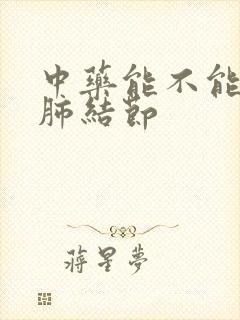 中藥能不能
肺結節
蔣星夢